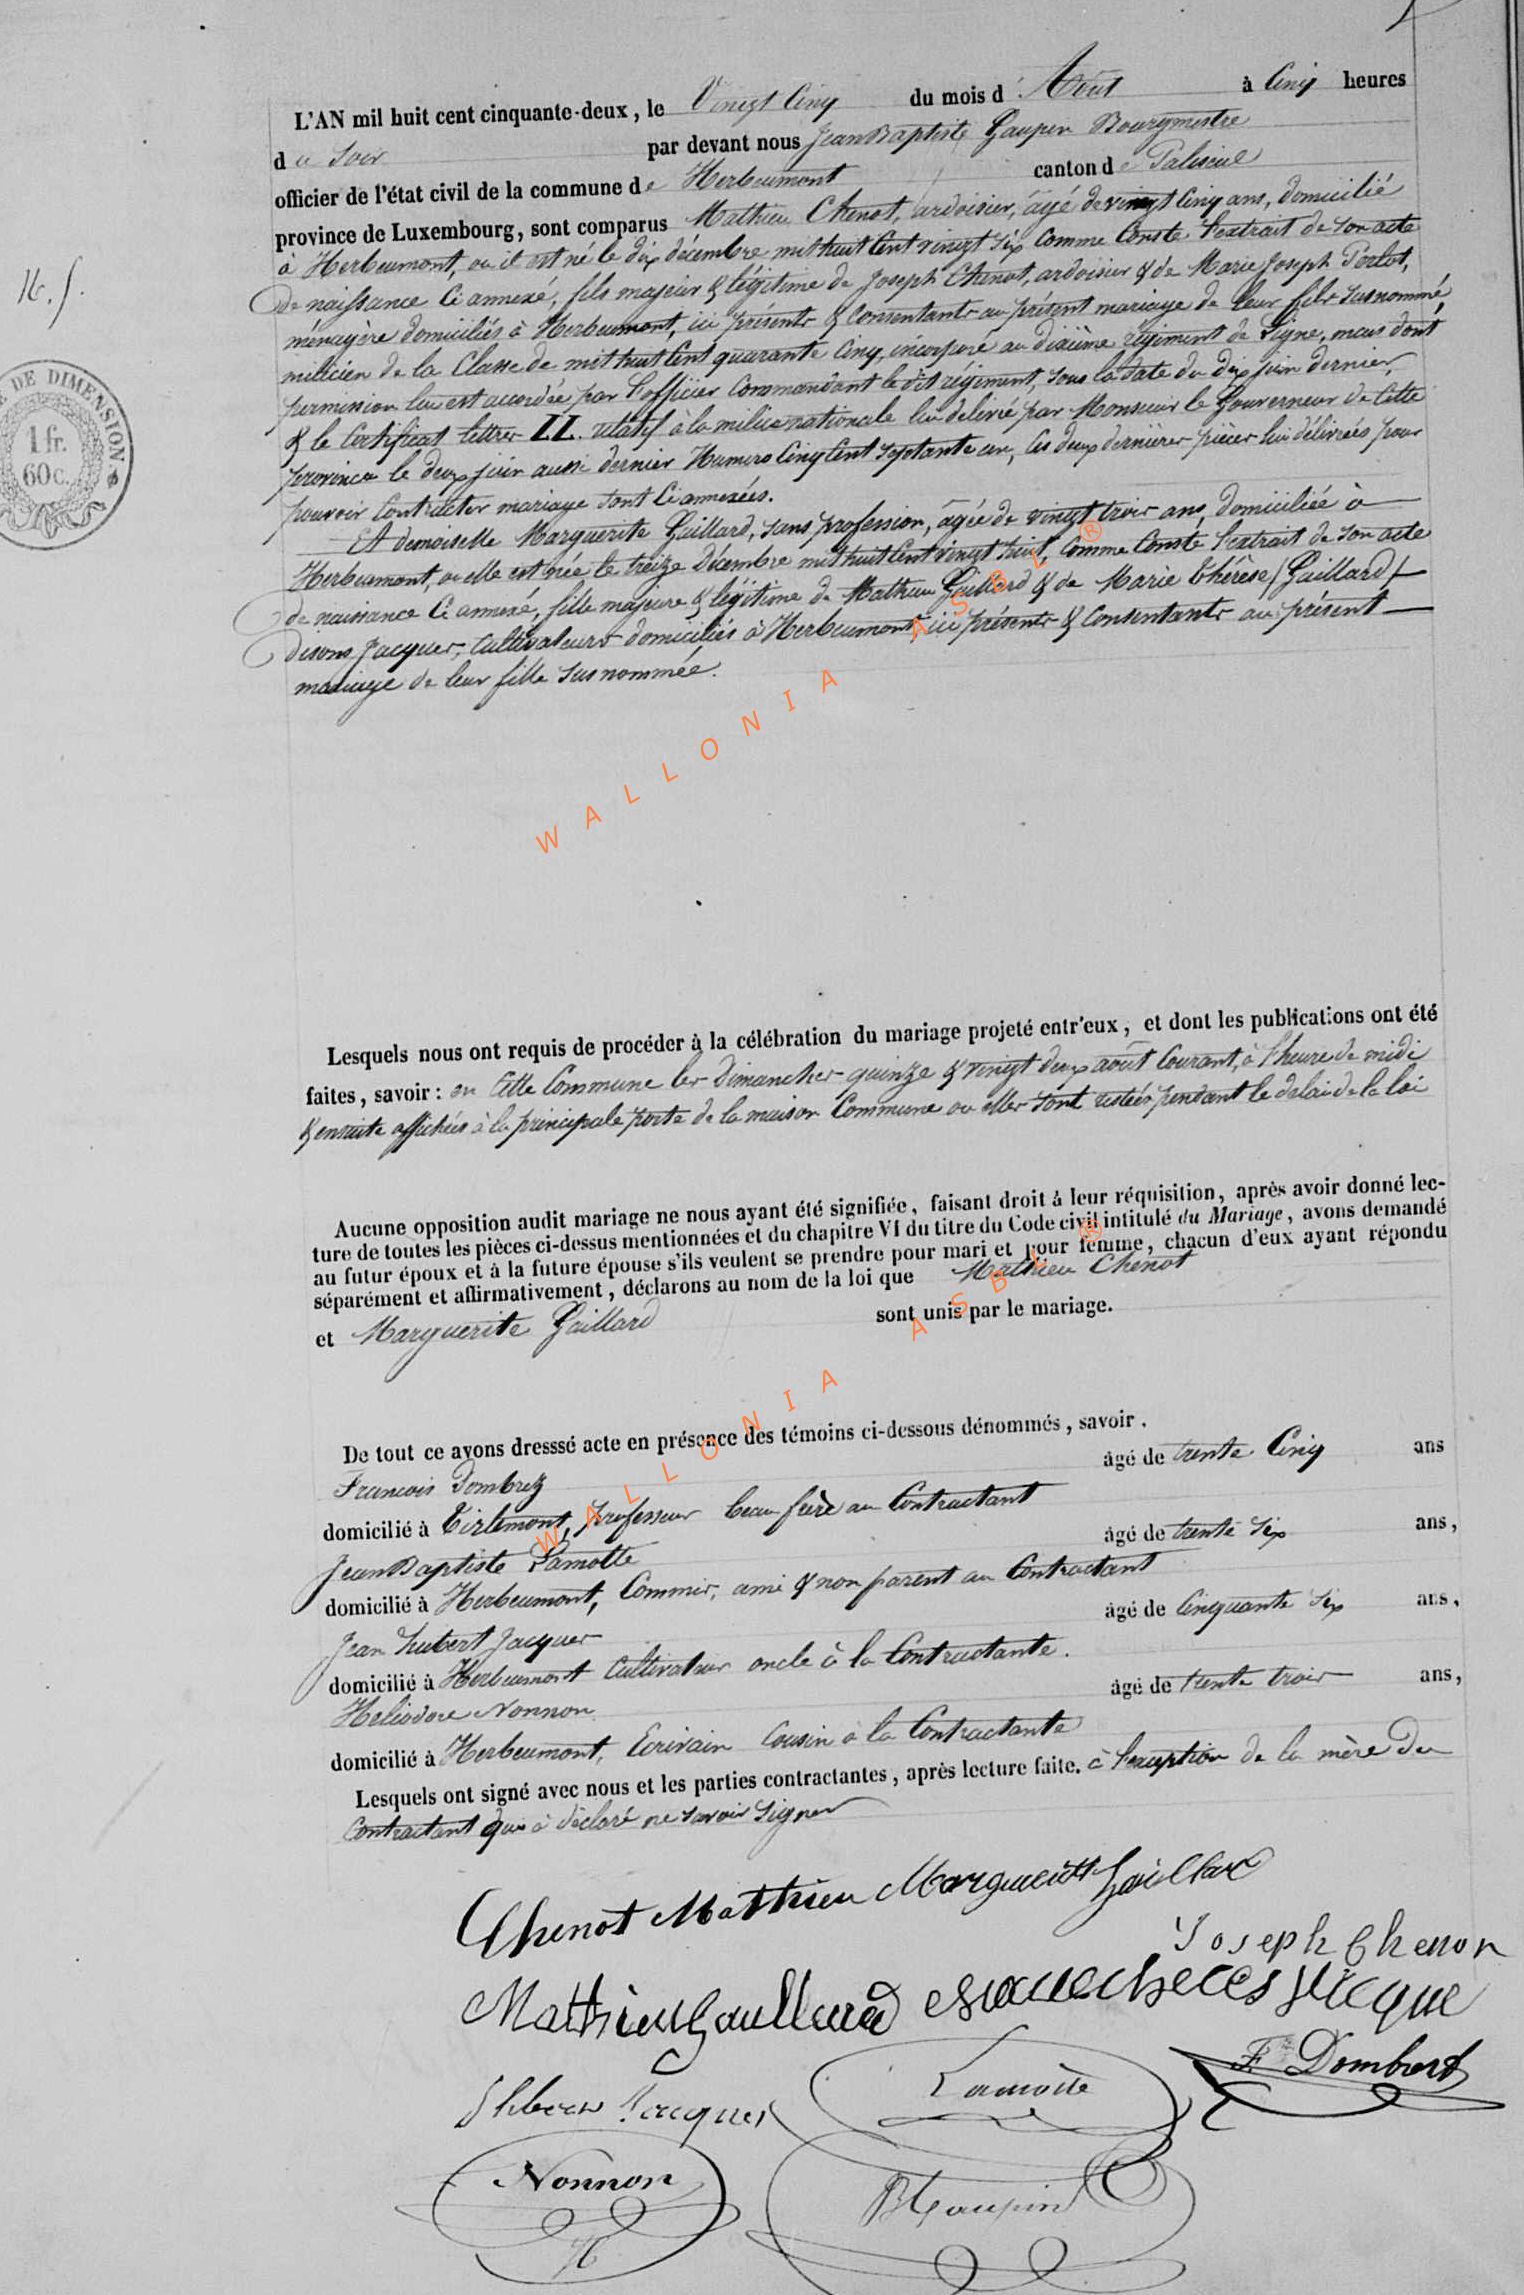 L'AN mil huit cent cinquante-deux, le Vingt Cinq du mois d'Août à Cinq heures
du Soir par devant nous Jean Baptiste Gaupin Bourgmestre
officier de l'état civil de la commune de Herbeumont canton de Paliseul
province de Luxembourg, sont comparus Mathieu Chenot, ardoisier, âgé de vingt Cinq ans, domicilié
à Herbeumont, ou il est né le dix décembre mil huit Cent vingt Six Comme Conste l'extrait de Son acte
de naissance Ci annexé, fils majeur & légitime de Joseph Chenot, ardoisier & de Marie Joseph Perlot,
ménagère domiciliés à Herbeumont, ici présents & Consentants au présent mariage de leur fils Susnommé,
milicien de la Classe de mil huit Cent quarante Cinq, incorporé au dixième régiment de Ligne, mais dont
permission lui est accordée par l'officier Commandant le dit régiment, Sous la date du dix juin dernier,
& le Certificat lettres LL. relatif à la milice nationale lui delivré par Monsieur le Gouverneur de Cette
province le deux juin aussi dernier Numero Cinq Cent Septante un, Ces deux dernières pièces lui délivrées pour
pouvoir Contracter mariage Sont Ci annexées.
Et demoiselle Marguerite Gaillard, Sans profession, âgée de vingt trois ans, domiciliée à
Herbeumont, ou elle est née le treize Décembre mil huit Cent vingt huit, Comme Conste l'extrait de Son acte
de naissance Ci annexé, fille majeure & légitime de Mathieu Gaillard & de Marie Thérèse (Gaillard)
disons Jacques, Cultivateurs domiciliés à Herbeumont ici présents & Consentants au présent
mariage de leur fille Susnommée.
16. f.
TE DE DIMENSION.
1 fr.
60c.
WALLONIA ASBL ®
Lesquels nous ont requis de procéder à la célébration du mariage projeté entr'eux, et dont les publications ont été
faites, savoir : en Cette Commune les Dimanches quinze & vingt deux août Courant, à l'heure de midi
& ensuite affichées à la principale porte de la maison Commune ou elles Sont restées pendant le delai de la loi
Aucune opposition audit mariage ne nous ayant été signifiée, faisant droit à leur réquisition, après avoir donné lec-
ture de toutes les pièces ci-dessus mentionnées et du chapitre VI du titre du Code civil intitulé du Mariage, avons demandé
au futur époux et à la future épouse s'ils veulent se prendre pour mari et pour femme, chacun d'eux ayant répondu
séparément et affirmativement, déclarons au nom de la loi que Mathieu Chenot
et Marguerite Gaillard sont unis par le mariage.
WALLONIA ASBL ®
De tout ce avons dresssé acte en présence des témoins ci-dessous dénommés, savoir.
François Dombrez âgé de trente Cinq ans
domicilié à Tirlemont, professeur beau frère au Contractant
Jean Baptiste Lamotte âgé de trente Six ans,
domicilié à Herbeumont, Commis, ami & non parent au Contractant
Jean hubert Jacques âgé de Cinquante Six ans,
domicilié à Herbeumont Cultivateur oncle à la Contractante.
Héliodore Nonnon âgé de trente trois ans,
domicilié à Herbeumont, Ecrivain Cousin à la Contractante
Lesquels ont signé avec nous et les parties contractantes, après lecture faite. à l'exception de la mère du
Contractant qui à déclaré ne Savoir Signer
Chenot Mathieu Marguerite Gaillard
Joseph Chenon
Mathieu Gaullard
F. Dombret
Lamotte
Jacques
Nonnon
JB Gaupin